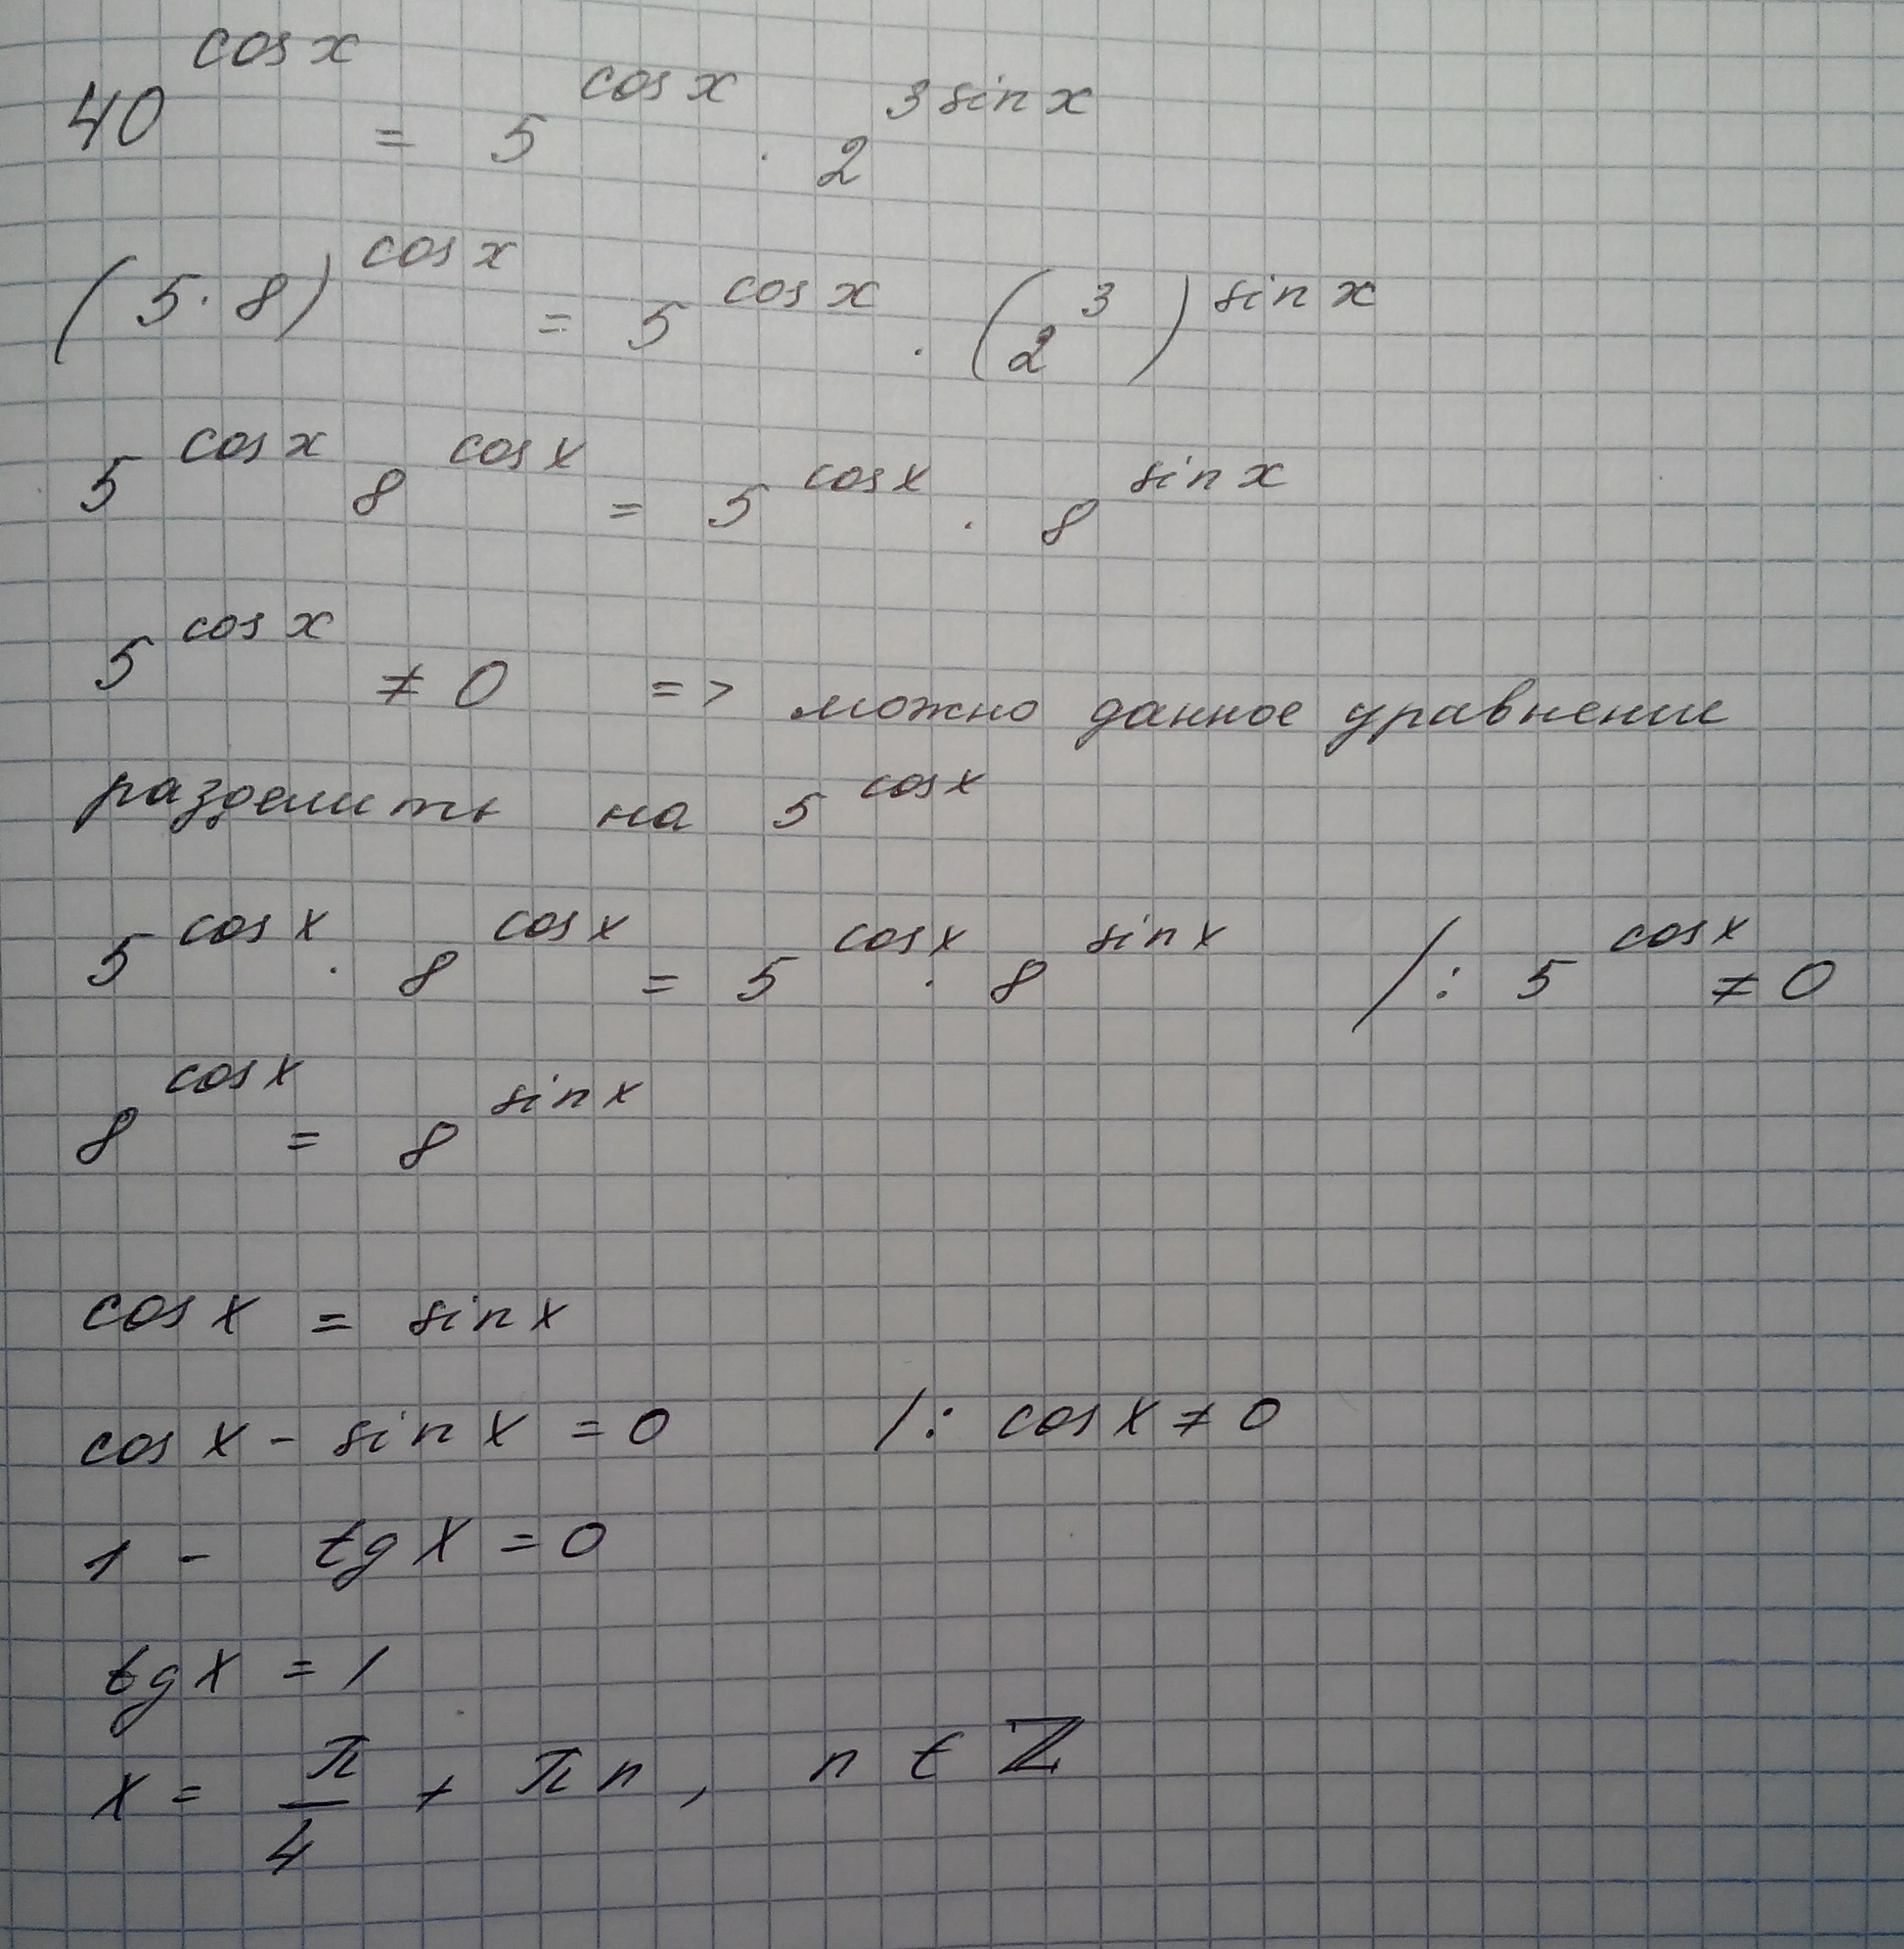 40^cos x = 5^cos x · 2^3 sin x
(5·8)^cos x = 5^cos x · (2^3)^sin x
5^cos x 8^cos x = 5^cos x · 8^sin x
5^cos x ≠ 0 => можно данное уравнение
разделить на 5^cos x
5^cos x · 8^cos x = 5^cos x · 8^sin x /: 5^cos x ≠ 0
8^cos x = 8^sin x
cos x = sin x
cos x - sin x = 0 /: cos x ≠ 0
1 - tg x = 0
tg x = 1
x = π/4 + πn, n ∈ Z